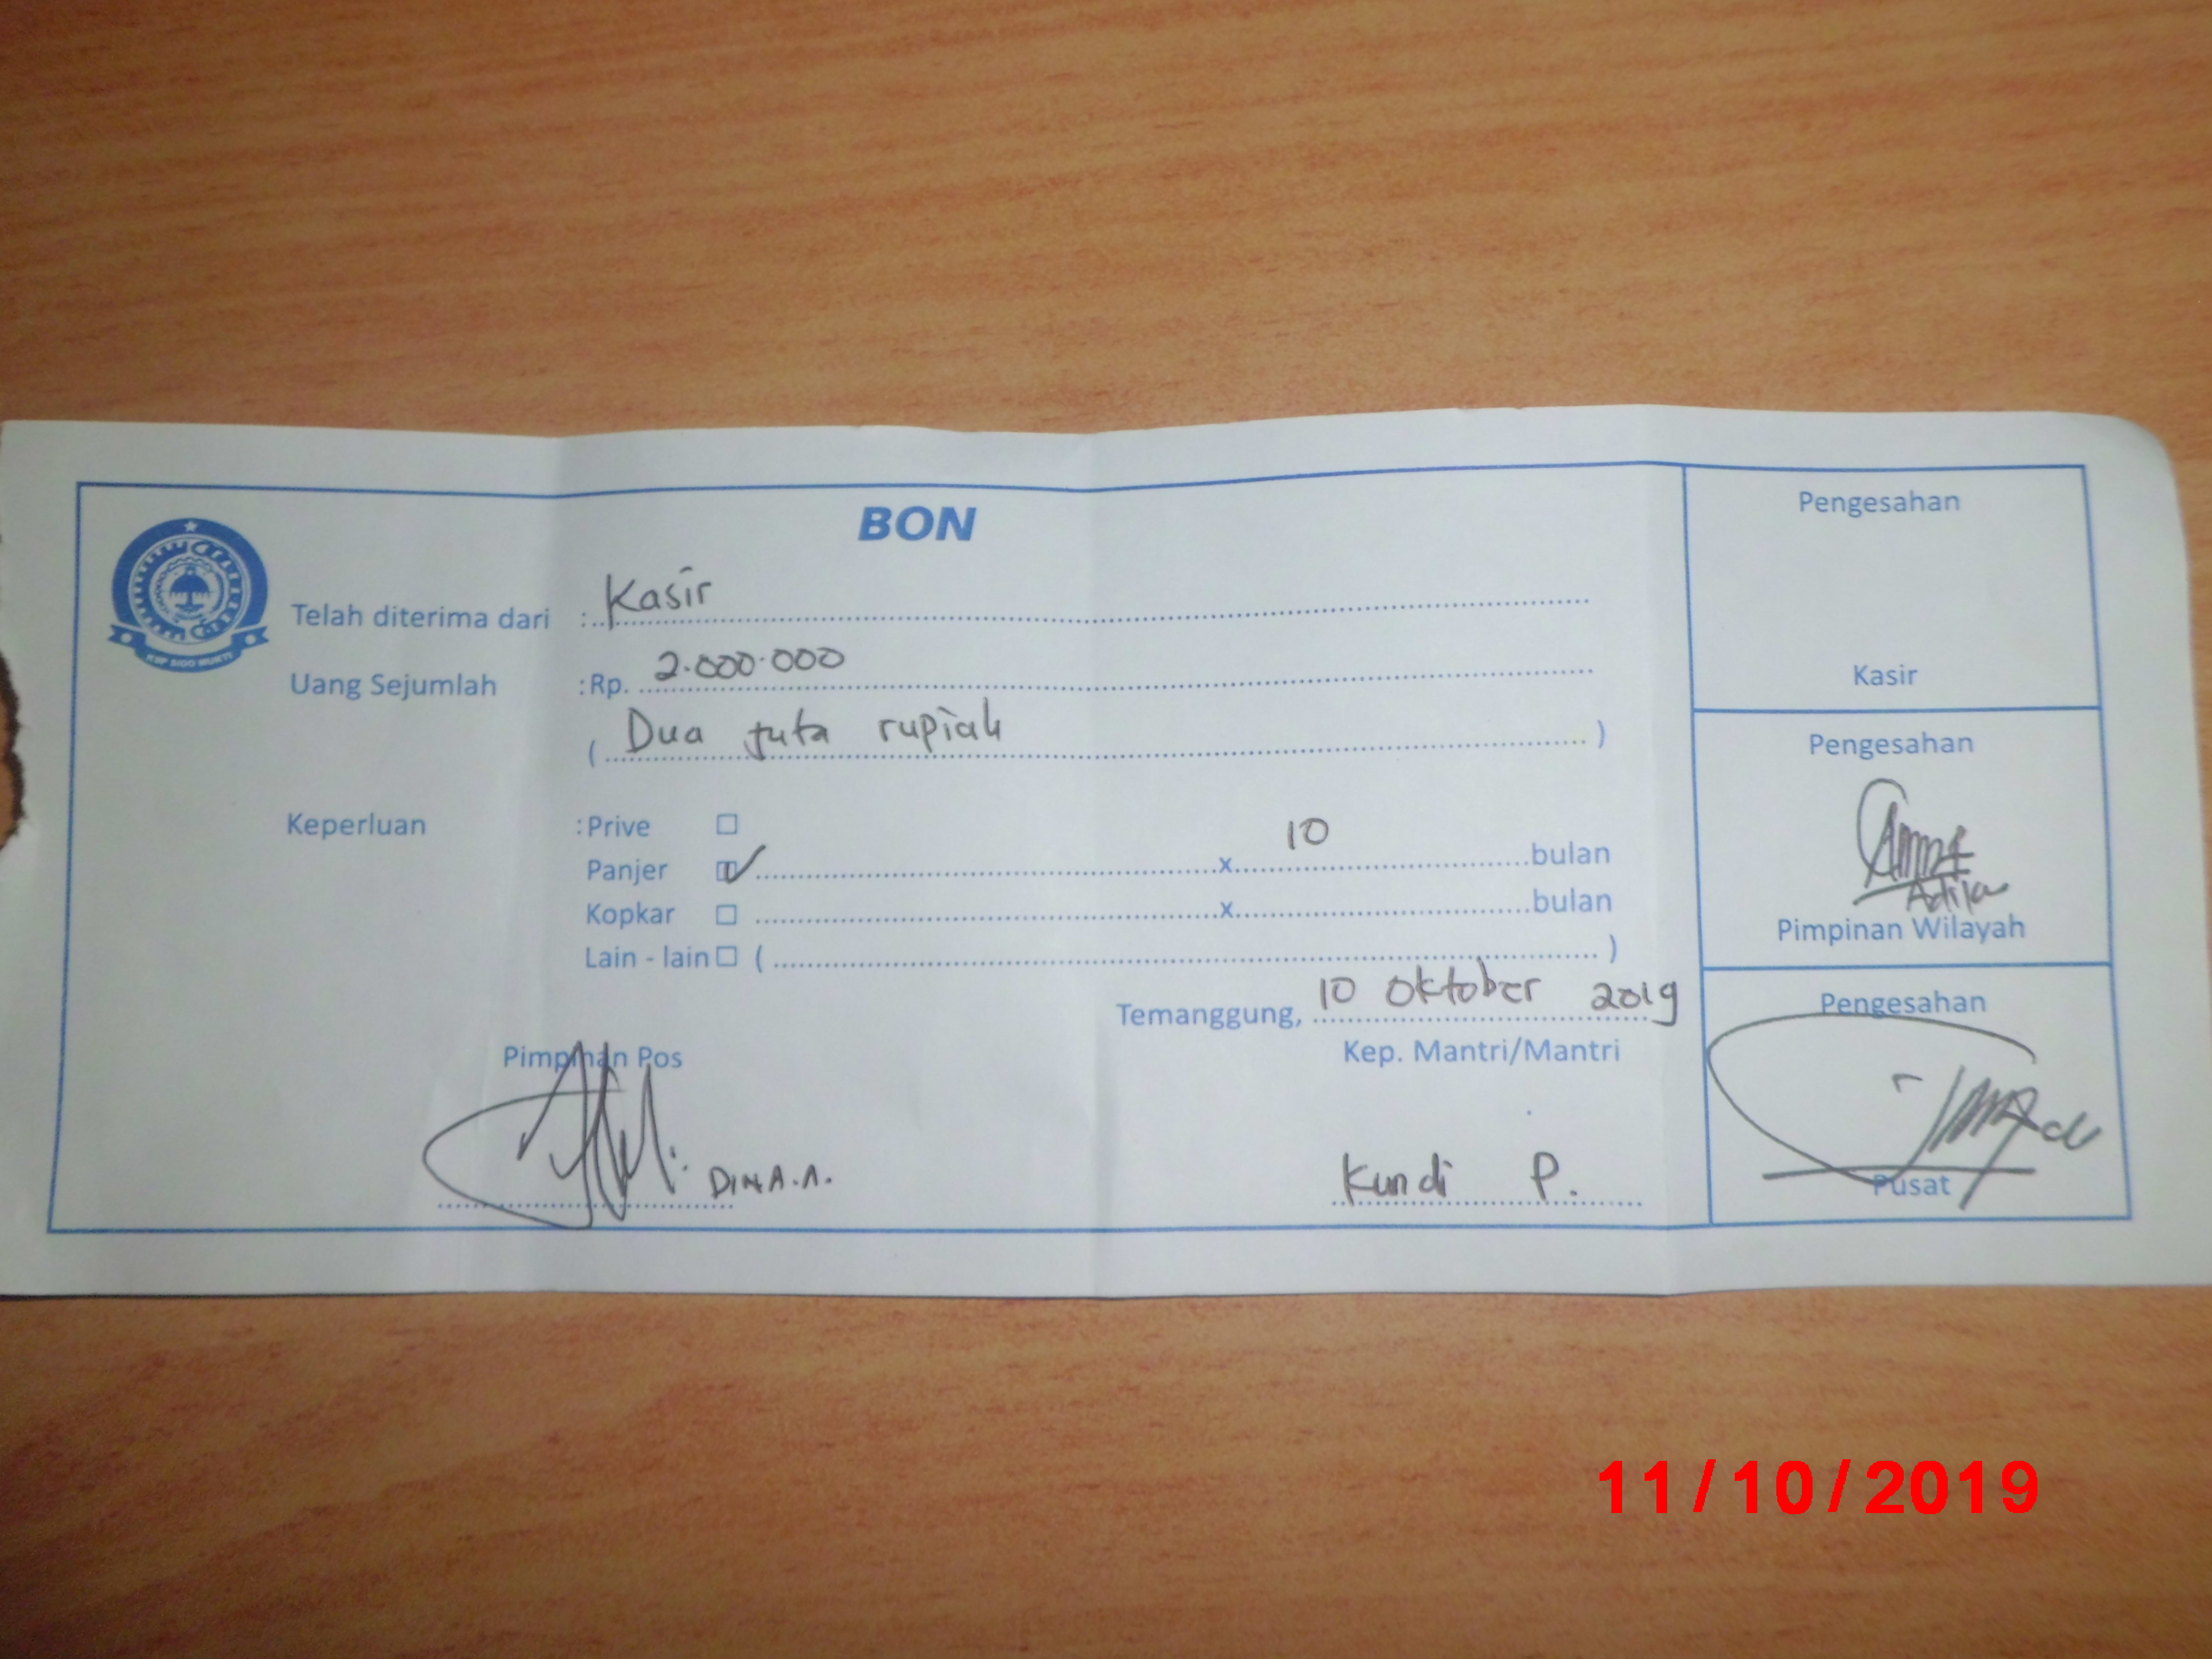 BON
Telah diterima dari : Kasir
Uang Sejumlah : Rp. 2.000.000
( Dua juta rupiah )
Keperluan : Prive
Panjer ✓ x 10 bulan
Kopkar x bulan
Lain - lain ( )
Temanggung, 10 Oktober 2019
Pimpinan Pos
Kep. Mantri/Mantri
DINA.A.
Kundi P.
Pengesahan
Kasir
Pengesahan
Adila
Pimpinan Wilayah
Pengesahan
Pusat
KSP SIDO MUKTI
11/10/2019